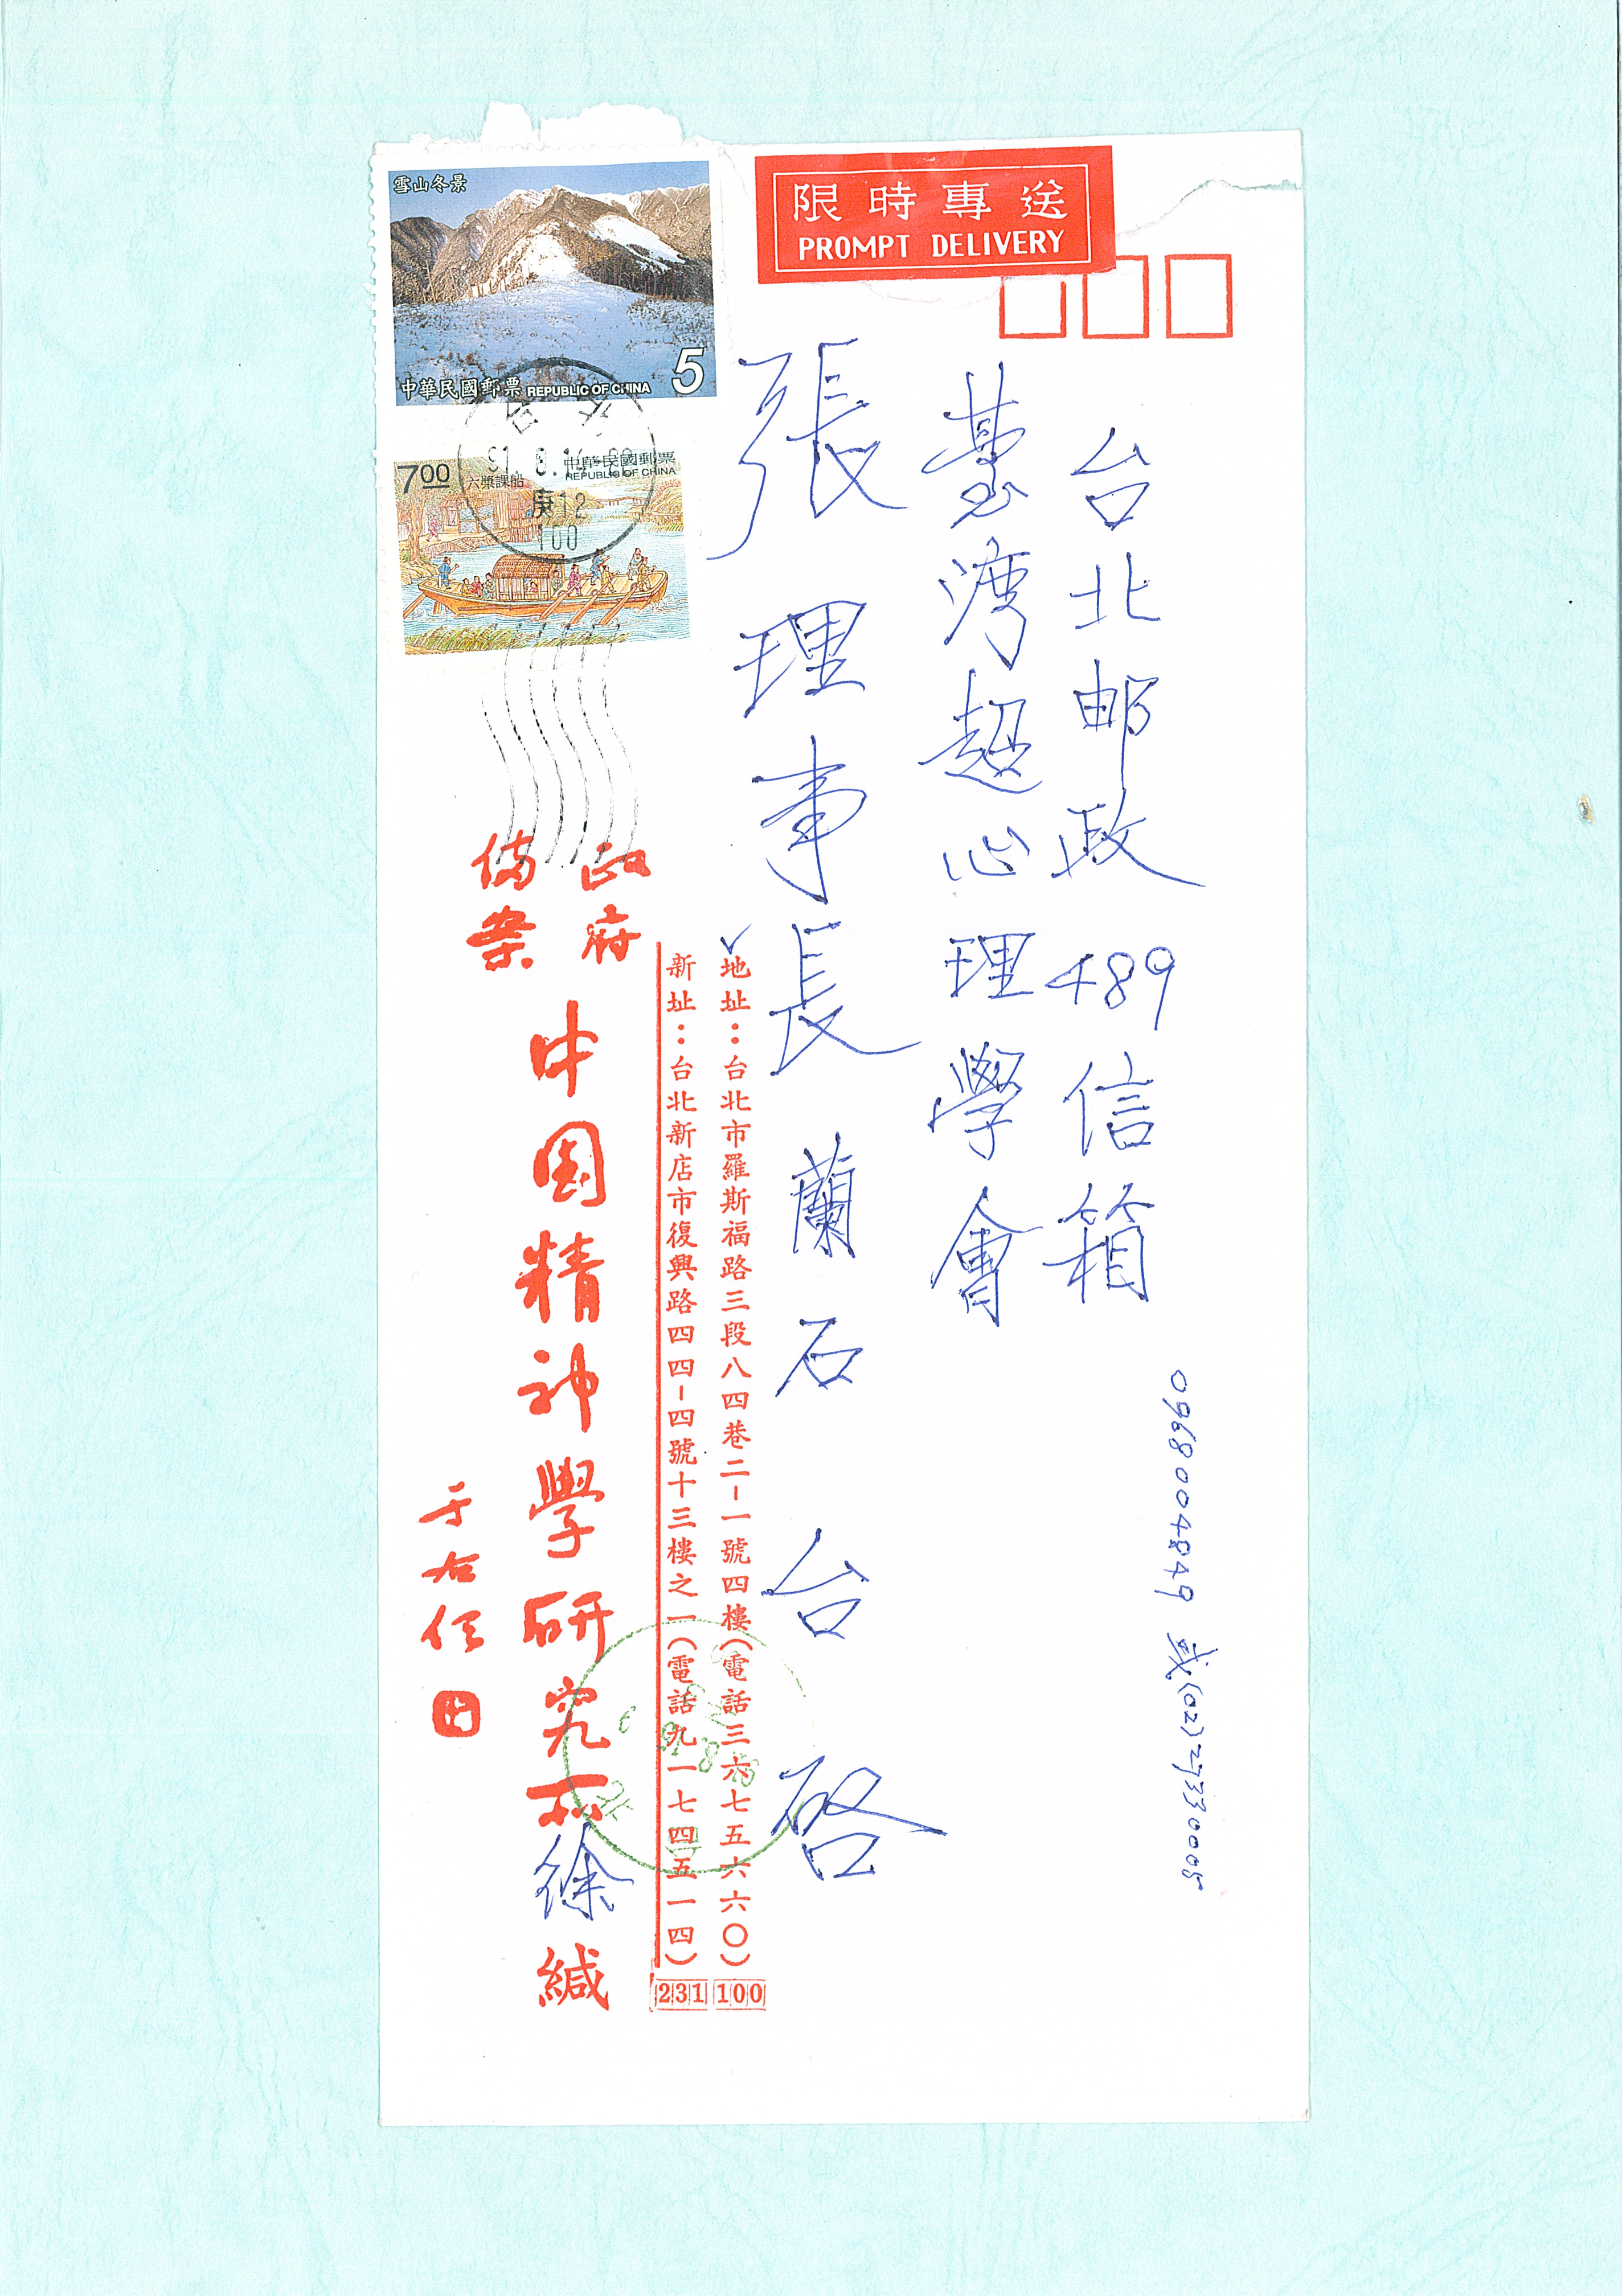 雪山冬景
中華民國郵票 REPUBLIC OF CHINA 5
7.00 六槳課船 中華民國郵票
REPUBLIC OF CHINA
91. 8. 14
庚12
100
限時專送
PROMPT DELIVERY
台北邮政489信箱
臺灣超心理學會
張理事長蘭石 台啓
0968004849 或(02)27330005
地址：台北市羅斯福路三段八四巷二-一號四樓(電話三六七五六六〇) 100
新址：台北新店市復興路四四-四號十三樓之一(電話九一七四五一四) 231
政府
備案
中国精神學研究所徐緘
于右任